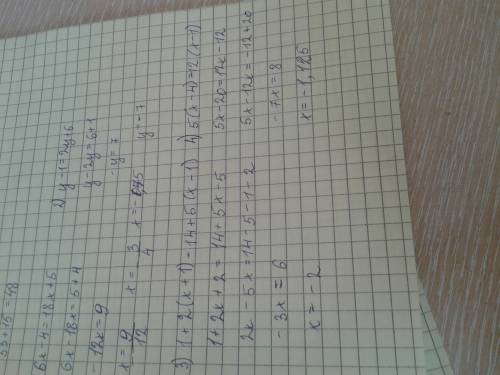 33+15=48
6x-4=18x+5
6x-18x=5+4
-12x=9
x=9/12 x=-3/4
2) y-1=2y+6
y-2y=6+1
-y=7 y=-7
3) 1+2(x+1)=14+5(x-1)
1+2x+2=14+5x-5
2x-5x=14-5-1-2
-3x=6
x=-2
4) 5(x-4)=12(x-1)
5x-20=12x-12
5x-12x=-12+20
-7x=8
x=-1,125